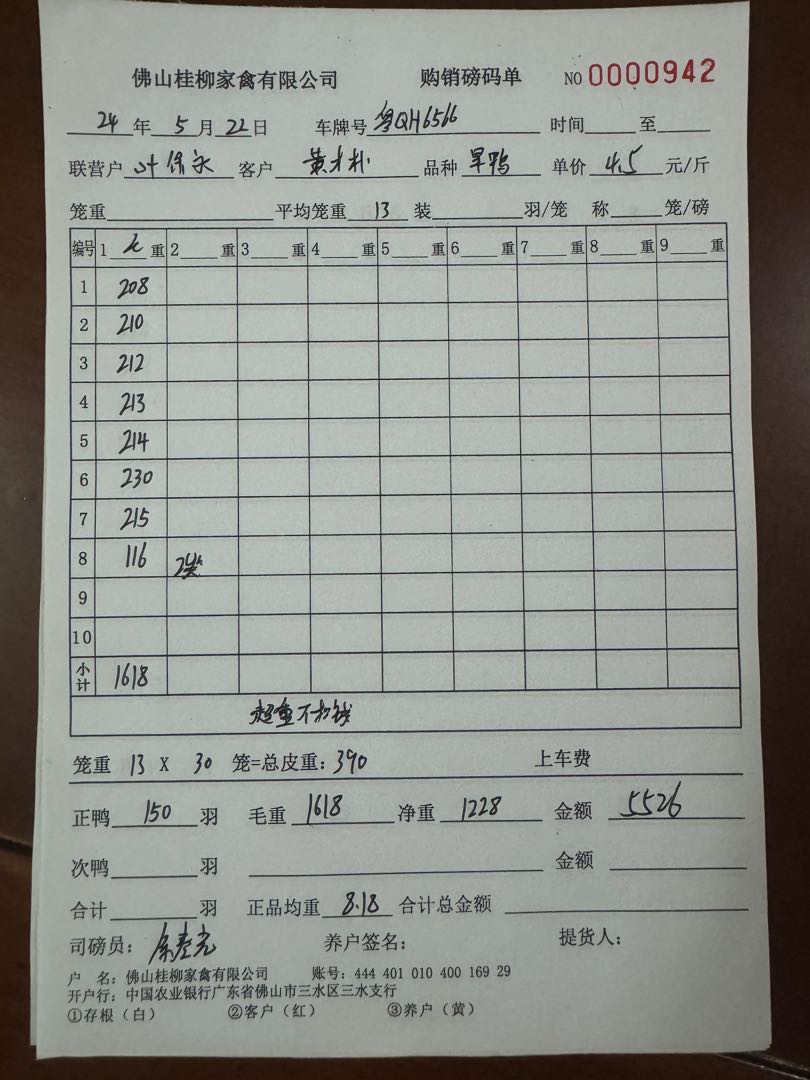 佛山桂柳家禽有限公司 购销磅码单 NO 0000942
24 年 5 月 22 日 车牌号 粤QH6566 时间 至
联营户 叶保永 客户 黄 品种 旱鸭 单价 4.5 元/斤
笼重 平均笼重 13 装 羽/笼 称 笼/磅
编号 1 毛 重 2 重 3 重 4 重 5 重 6 重 7 重 8 重 9 重
1 208
2 210
3 212
4 213
5 214
6 230
7 215
8 116 2笼
9
10
小计 1618
超重不扣钱
笼重 13 X 30 笼=总皮重: 390 上车费
正鸭 150 羽 毛重 1618 净重 1228 金额 5526
次鸭 羽 金额
合计 羽 正品均重 8.18 合计总金额
司磅员: 养户签名: 提货人:
户 名: 佛山桂柳家禽有限公司 账号: 444 401 010 400 169 29
开户行: 中国农业银行广东省佛山市三水区三水支行
①存根(白) ②客户(红) ③养户(黄)